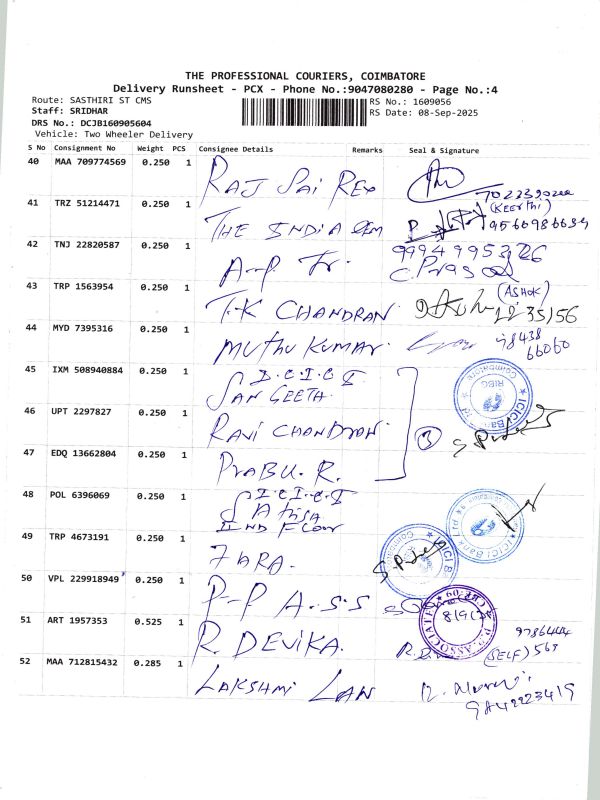 THE PROFESSIONAL COURIERS, COIMBATORE
Delivery Runsheet - PCX - Phone No.:9047080280 - Page No.:4
Route: SASTHIRI ST CMS RS No.: 1609056
Staff: SRIDHAR RS Date: 08-Sep-2025
DRS No.: DCJB160905604
Vehicle: Two Wheeler Delivery
S No Consignment No Weight PCS Consignee Details Remarks Seal & Signature
40 MAA 709774569 0.250 1 RAJ SAI REX
41 TRZ 51214471 0.250 1 THE INDIA (KEERTHI)
42 TNJ 22820587 0.250 1 A-P Tr.
43 TRP 1563954 0.250 1 T.K CHANDRAN (ASHOK)
44 MYD 7395316 0.250 1 MUTHU KUMAR. 98438 66060
45 IXM 508940884 0.250 1 I.C.I.C.I
SANGEETH. ICICI Bank
46 UPT 2297827 0.250 1 RAVI CHANDRAN 3
47 EDQ 13662804 0.250 1 PRABU.R.
48 POL 6396069 0.250 1 I.C.I.C.I
IIND FLOOR ICICI Bank Ltd
49 TRP 4673191 0.250 1 ZARA.
50 VPL 229918949 0.250 1 P-P A.S.S
51 ART 1957353 0.525 1 R. DEVIKA. (SELF)
52 MAA 712815432 0.285 1 LAKSHMI LAN
9842223419